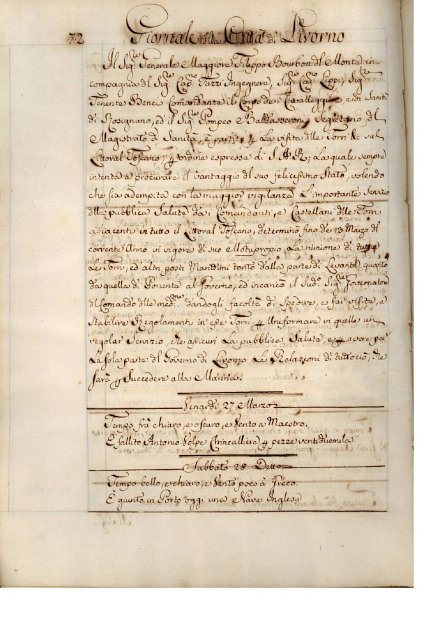 72 Giornale della Città di Livorno
Il Sig.re Generale Maggiore Filippo Bourbon del Monte, in
compagnia del Sig.re Cap.no Ingegnere, Sig.re
Tenente Comandante il Corpo de Cavalleggieri,
di Rosignano, ed il Sig.re Pompeo Baldasseroni Segretario del
Magistrato di Sanità, è partito p la visita delle Torri sul
Littoral Toscano, p ordine espresso di S.A.R., la quale sempre
intenta a procurare il vantaggio del suo felicissimo Stato, volendo
che sia adempita con la maggior vigilanza l'importante Servizio
della pubblica Salute da i Comandanti, e Castellani delle Torri
adiacenti in tutto il Littoral Toscano, determinò fino de Marzo del
corrente Anno in vigore di suo Motuproprio la riunione di tutte
le Torri, ed altri posti Marittimi tanto dalla parte di Levante, quanto
da quella di Ponente al Governo, ed incaricò il Sud.o Sig.re Governatore
del Comando delle med.me, dandogli facoltà di Spedire, e far visite, e
Stabilire Regolamenti in esse Torri p Uniformare in quelle un
regolar Servizio, che assicuri la pubblica Salute, e p avere per
la sola parte del Governo di Livorno le Relazioni di tutto ciò, che
sarà p Succedere alla Marina.
Venerdì 27 Marzo
Tempo frà chiaro, e oscuro, e Vento a Maestro.
È fallito Antonio Volpe p pezze ventiduemila
Sabbato 28 Detto
Tempo bello, e chiaro, e Vento poco à Greco.
È giunto in Porto oggi una Nave Inglese